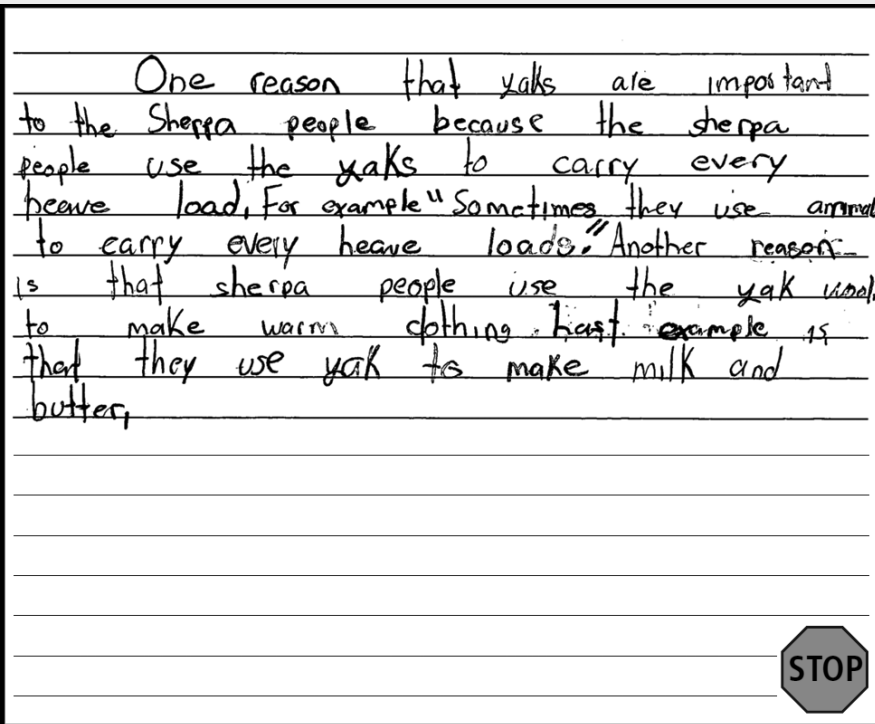 One reason that yaks are impostant
to the Sherpa people because the sherpa
people use the yaks to carry every
heave load, For example "Sometimes they use animal
to carry every heave loads." Another reason
is that sherpa people use the yak wool
to make warm clothing. Last example is
that they use yak to make milk and
butter,
STOP